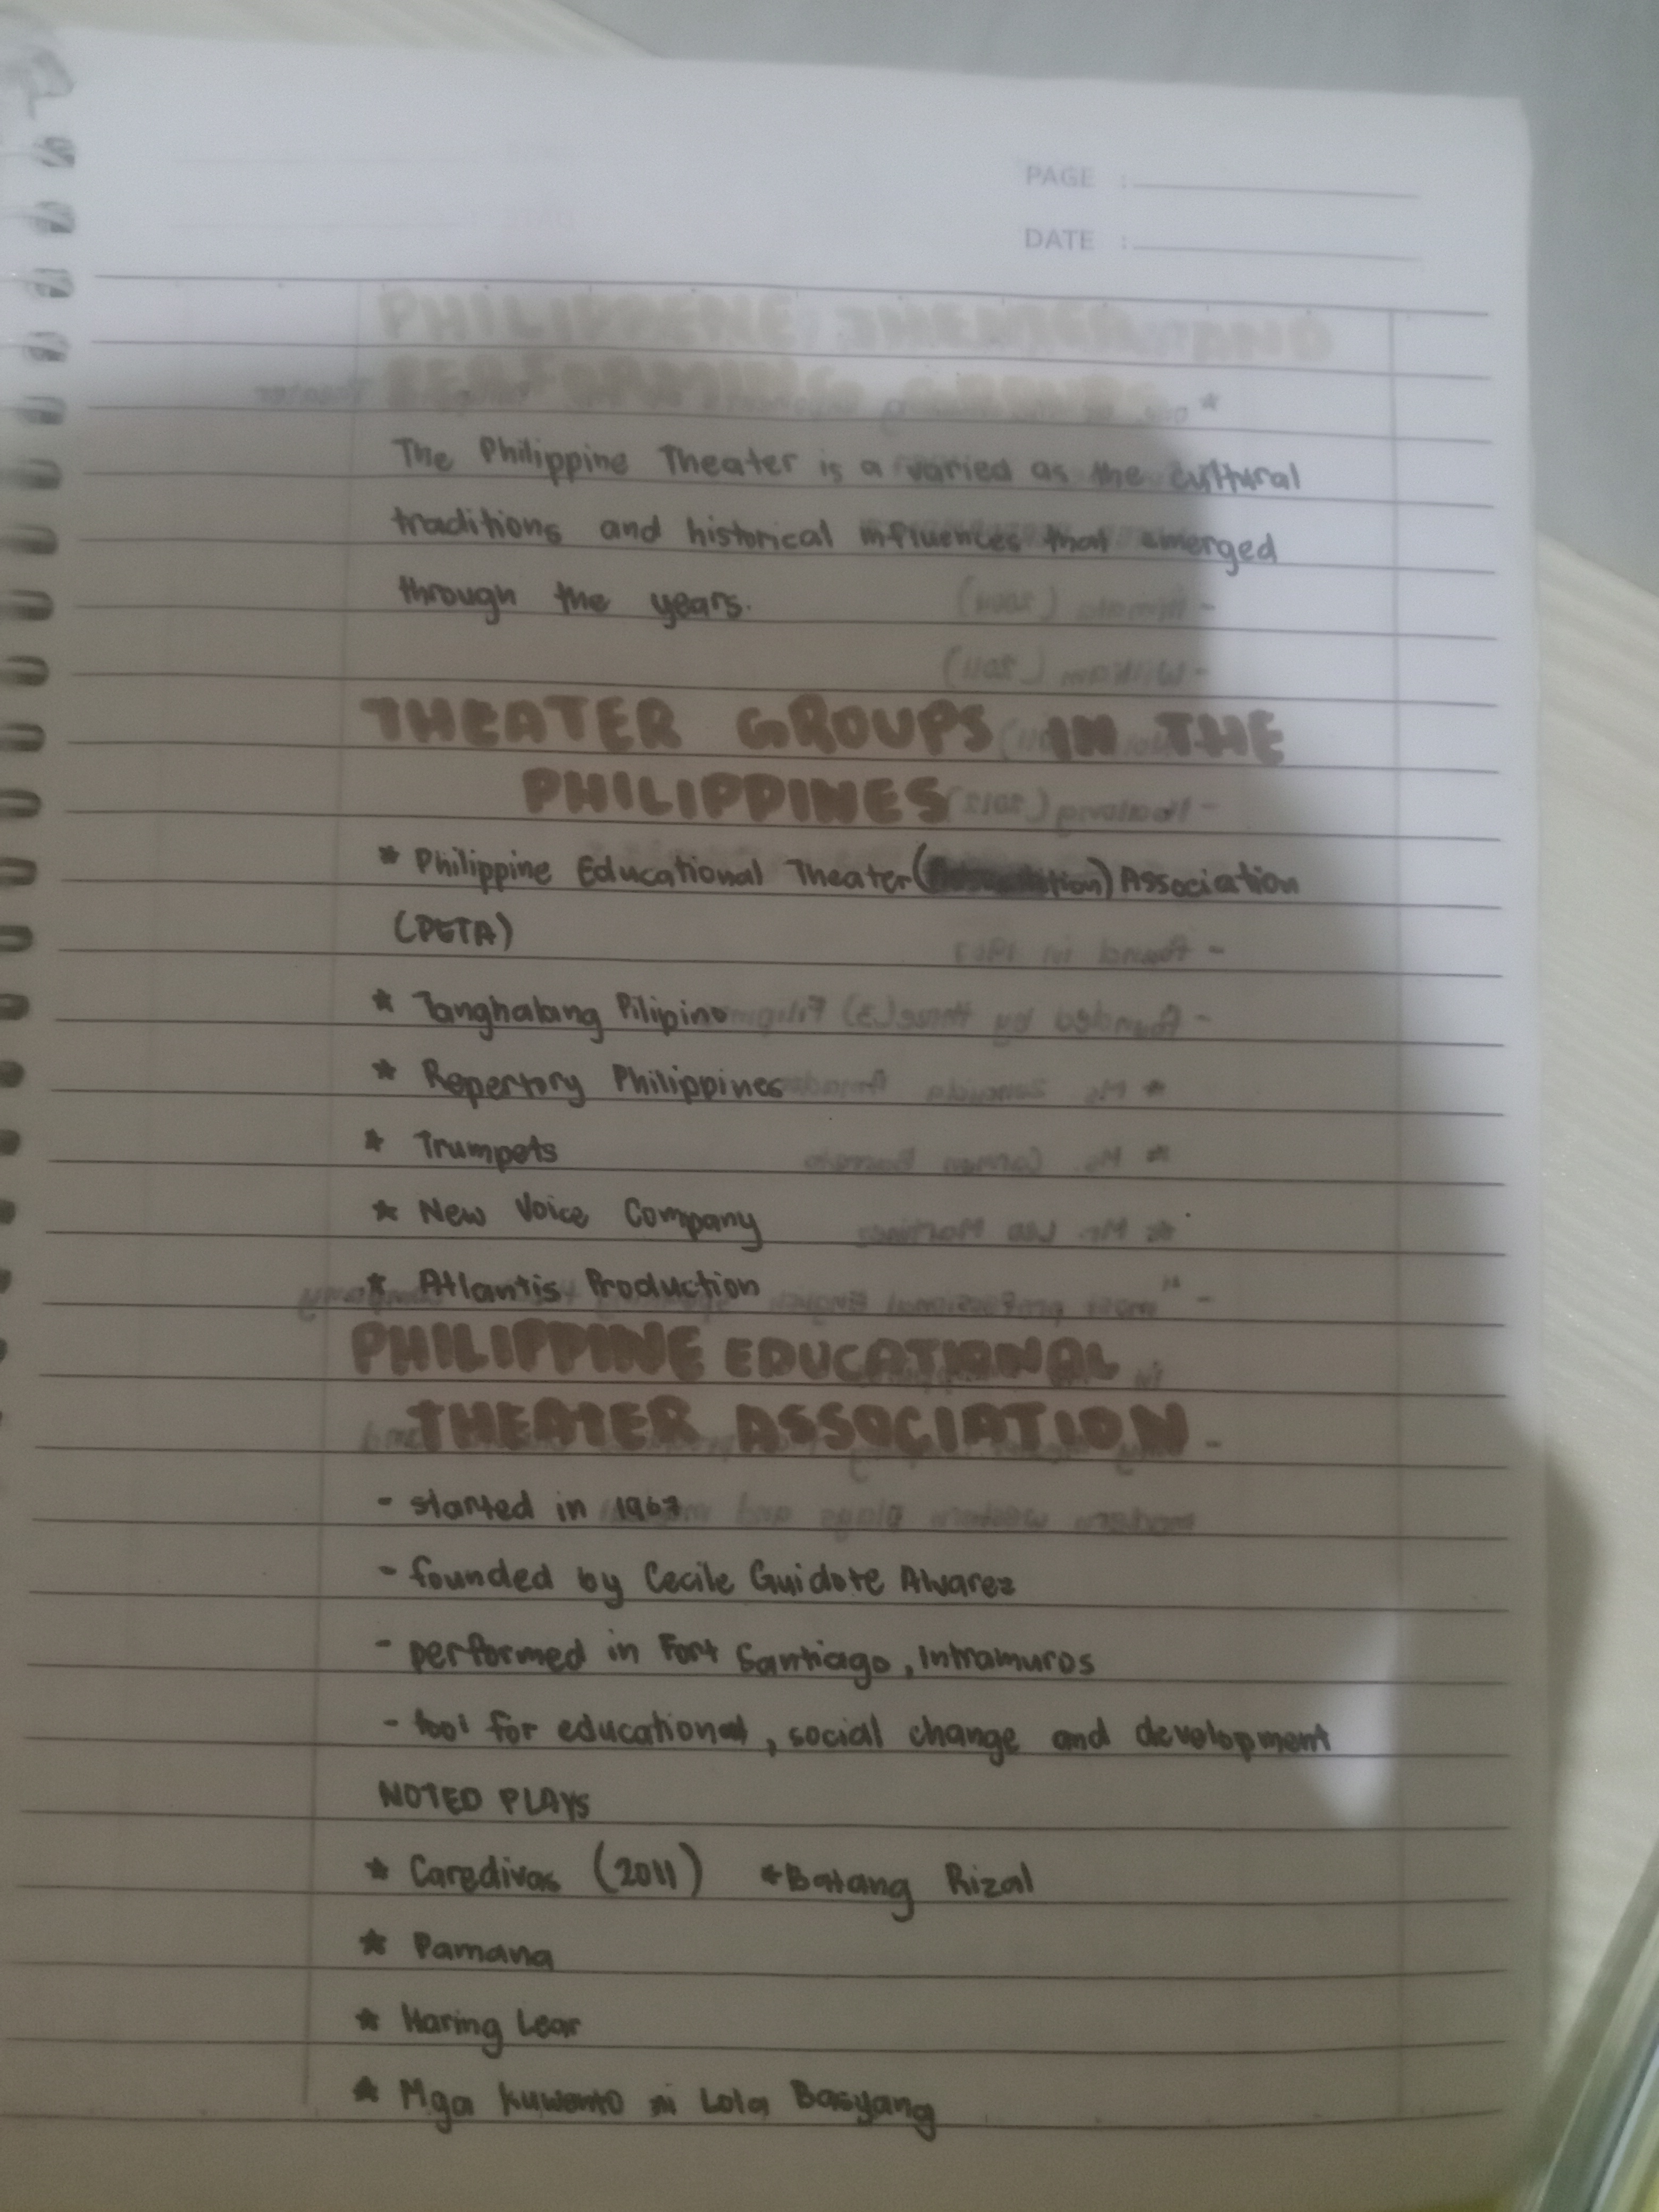 PAGE :
DATE :
PHILIPPENE THEATER AND
PERFORMING GROUPS
The Philippine Theater is a varied as the cultural
traditions and historical influences that emerged
through the years.
THEATER GROUPS IN THE
PHILIPPINES
* Philippine Educational Theater ( ) Association
(PETA)
* Tanghalang Pilipino
* Repertory Philippines
* Trumpets
* New Voice Company
* Atlantis Production
PHILIPPINE EDUCATIONAL
THEATER ASSOCIATION
- started in 1967
- founded by Cecile Guidote Alvarez
- performed in Fort Santiago, Intramuros
- tool for educational, social change and development
NOTED PLAYS
* Caredivas (2011) *Batang Rizal
* Pamana
* Haring Lear
* Mga kuwento ni Lola Basyang